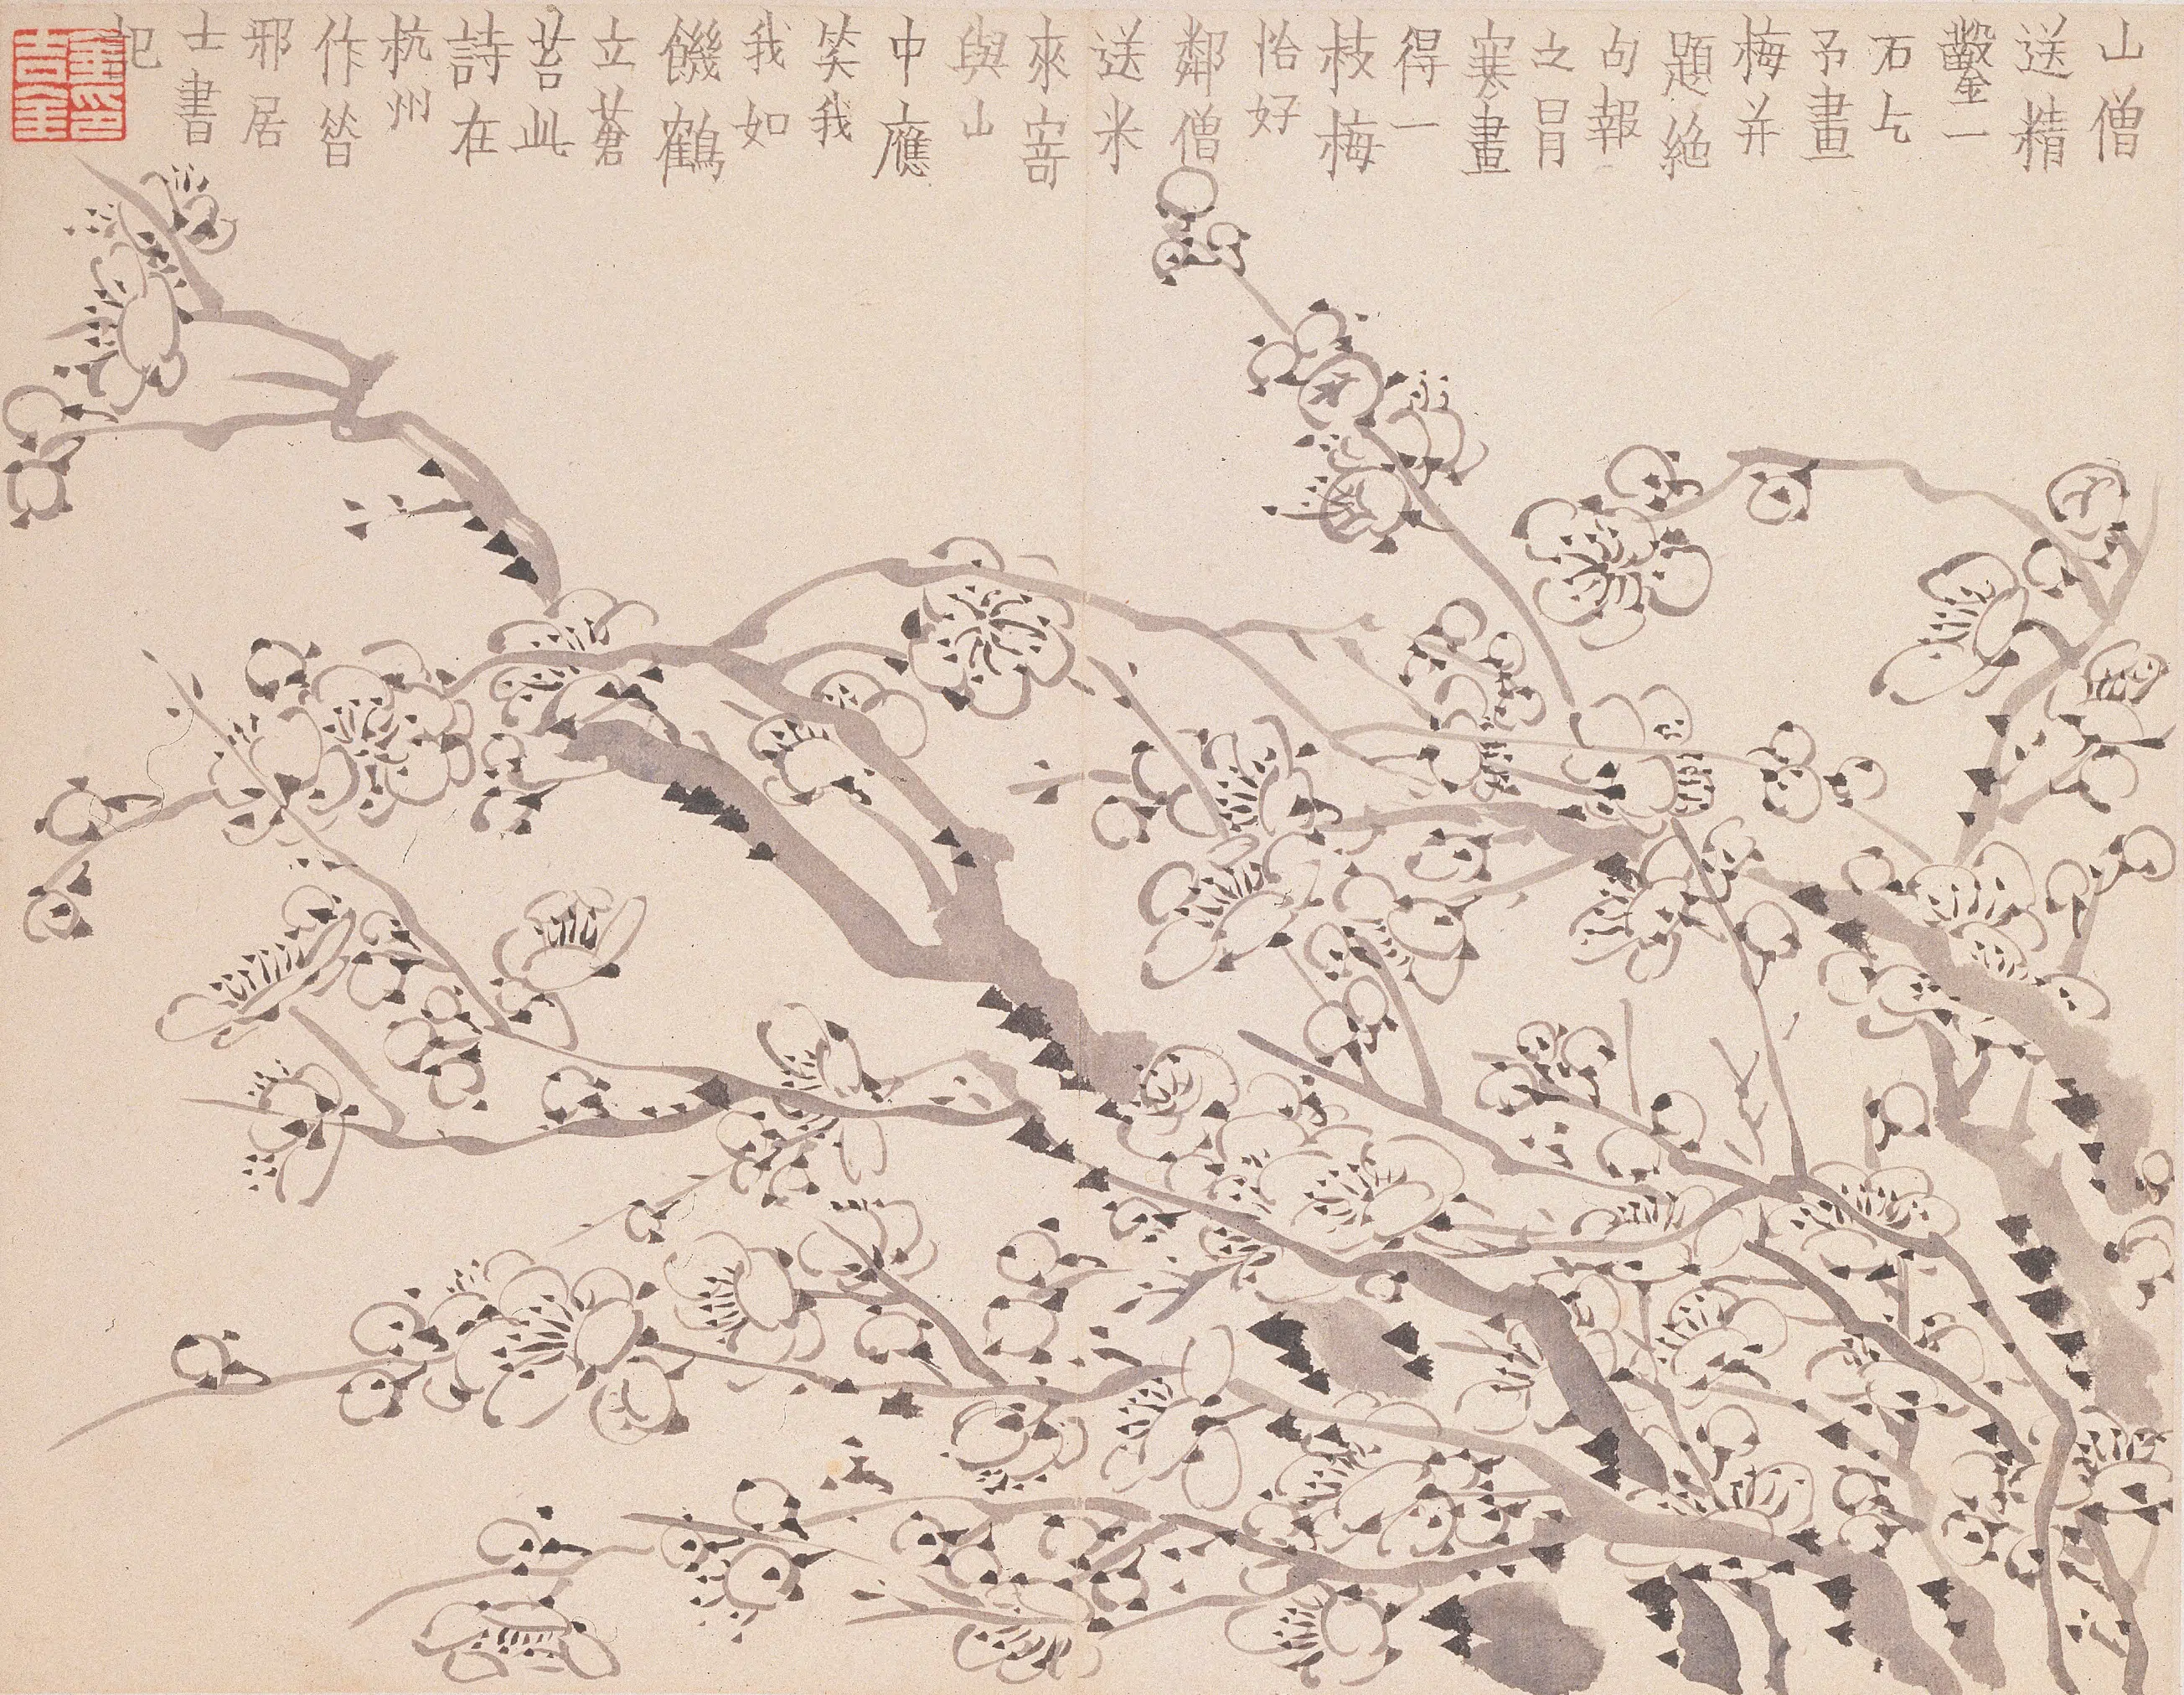 山僧
送精
鑿一
石乞
予畫
梅并
題絶
句報
之冒
寒畫
得一
枝梅
恰好
鄰僧
送米
來寄
與山
中應
笑我
我如
饑鶴
立蒼
苔此
詩在
杭州
作昔
邪居
士書
記
金印
吉金